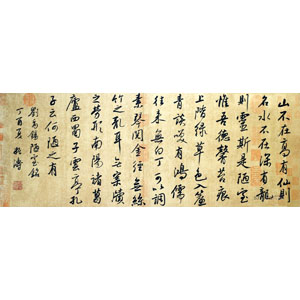 山不在高有仙則
名水不在深有龍
則靈斯是陋室
惟吾德馨苔痕
上階綠草色入簾
青談笑有鴻儒
往来無白丁可以調
素琴閱金經無絲
竹之亂耳无案牘
之勞形南陽諸葛
廬西蜀子雲亭孔
子云何陋之有
劉禹錫陋室銘
丁酉夏